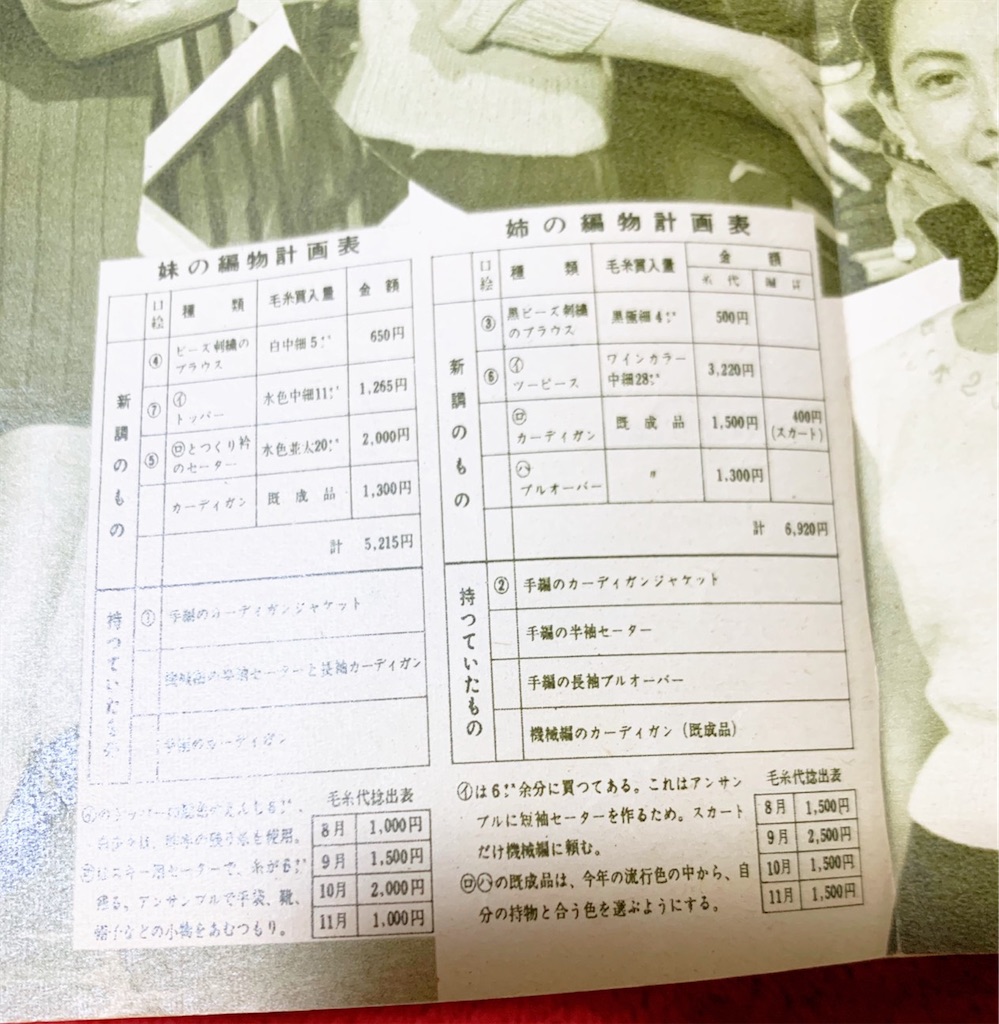 妹の編物計画表
口絵 種類 毛糸買入量 金額
新調のもの
④ ビーズ刺繍のブラウス 白中細5オンス 650円
⑦ ㋑トッパー 水色中細11オンス 1,265円
⑤ ㋺とつくり衿のセーター 水色並太20オンス 2,000円
カーディガン 既成品 1,300円
計 5,215円
持つていたもの
① 手編のカーディガンジャケット
機械編の半袖セーターと長袖カーディガン
手編のカーディガン
残り糸を使用。
セーターで、糸が6オンス
残る。アンサンブルで手袋、靴、
帽子などの小物をあむつもり。
毛糸代捻出表
8月 1,000円
9月 1,500円
10月 2,000円
11月 1,000円
姉の編物計画表
口絵 種類 毛糸買入量 金額
糸代 編賃
新調のもの
③ 黒ビーズ刺繍のブラウス 黒極細4オンス 500円
⑥ ㋑ツーピース ワインカラー中細28オンス 3,220円
㋺カーディガン 既成品 1,500円 400円(スカート)
㋩プルオーバー 〃 1,300円
計 6,920円
持つていたもの
② 手編のカーディガンジャケット
手編の半袖セーター
手編の長袖プルオーバー
機械編のカーディガン(既成品)
㋑は6オンス余分に買つてある。これはアンサン
ブルに短袖セーターを作るため。スカート
だけ機械編に頼む。
㋺㋩の既成品は、今年の流行色の中から、自
分の持物と合う色を選ぶようにする。
毛糸代捻出表
8月 1,500円
9月 2,500円
10月 1,500円
11月 1,500円